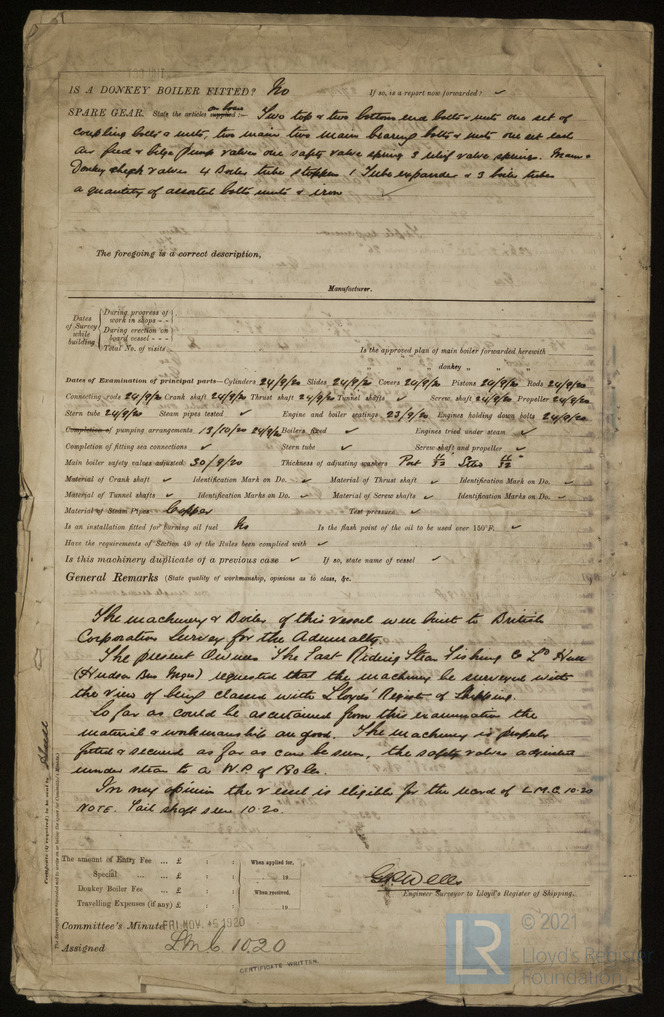 IS A DONKEY BOILER FITTED? No If so, is a report now forwarded? ✓
SPARE GEAR. State the articles supplied:— on board Two top & two bottom end bolts & nuts one set of
coupling bolts & nuts, two main two main bearing bolts & nuts one set each
air feed & bilge pump valves one safety valve spring 3 relief valve springs. Main &
Donkey check valves 4 Boiler tube stoppers 1 Tube expander & 3 boiler tubes
a quantity of assorted bolts nuts & iron
The foregoing is a correct description,
Manufacturer.
Dates of Survey while building
During progress of work in shops - -
During erection on board vessel - - -
Total No. of visits
Is the approved plan of main boiler forwarded herewith
" " " donkey " "
Dates of Examination of principal parts—Cylinders 24/9/20 Slides 24/9/20 Covers 24/9/20 Pistons 24/9/20 Rods 24/9/20
Connecting rods 24/9/20 Crank shaft 24/9/20 Thrust shaft 24/9/20 Tunnel shafts ✓ Screw shaft 24/9/20 Propeller 24/9/20
Stern tube 24/9/20 Steam pipes tested ✓ Engine and boiler seatings 23/9/20 Engines holding down bolts 24/9/20
Completion of pumping arrangements 13/10/20 24/9/20 Boilers fixed ✓ Engines tried under steam ✓
Completion of fitting sea connections ✓ Stern tube ✓ Screw shaft and propeller ✓
Main boiler safety valves adjusted 30/9/20 Thickness of adjusting washers Port 11/32 Stbd 11/32
Material of Crank shaft ✓ Identification Mark on Do. ✓ Material of Thrust shaft ✓ Identification Mark on Do. ✓
Material of Tunnel shafts ✓ Identification Marks on Do. ✓ Material of Screw shafts ✓ Identification Marks on Do. ✓
Material of Steam Pipes Copper Test pressure ✓
Is an installation fitted for burning oil fuel No Is the flash point of the oil to be used over 150°F. ✓
Have the requirements of Section 49 of the Rules been complied with ✓
Is this machinery duplicate of a previous case ✓ If so, state name of vessel ✓
General Remarks (State quality of workmanship, opinions as to class, &c.
The machinery & Boiler of this vessel were built to British
Corporation Survey for the Admiralty.
The present Owners The East Riding Steam Fishing Co Ld Hull
(Hudson Bros Mgrs) requested that the machinery be surveyed with
the view of being classed with Lloyds' Register of Shipping.
So far as could be ascertained from this examination the
material & workmanship are good. The machinery is properly
fitted & secured as far as can be seen, the safety valves adjusted
under steam to a W.P. of 180 lbs.
In my opinion the vessel is eligible for the record of L.M.C. 10.20
NOTE. Tail shaft seen 10.20.
The amount of Entry Fee ... £ : :
Special ... ... £ : :
Donkey Boiler Fee ... £ : :
Travelling Expenses (if any) £ : :
When applied for,
19
When received,
19
Engineer Surveyor to Lloyd's Register of Shipping.
Committee's Minute FRI NOV. 5 1920
Assigned LMC 10.20
CERTIFICATE WRITTEN.
LR © 2021
Lloyd's Register
Foundation